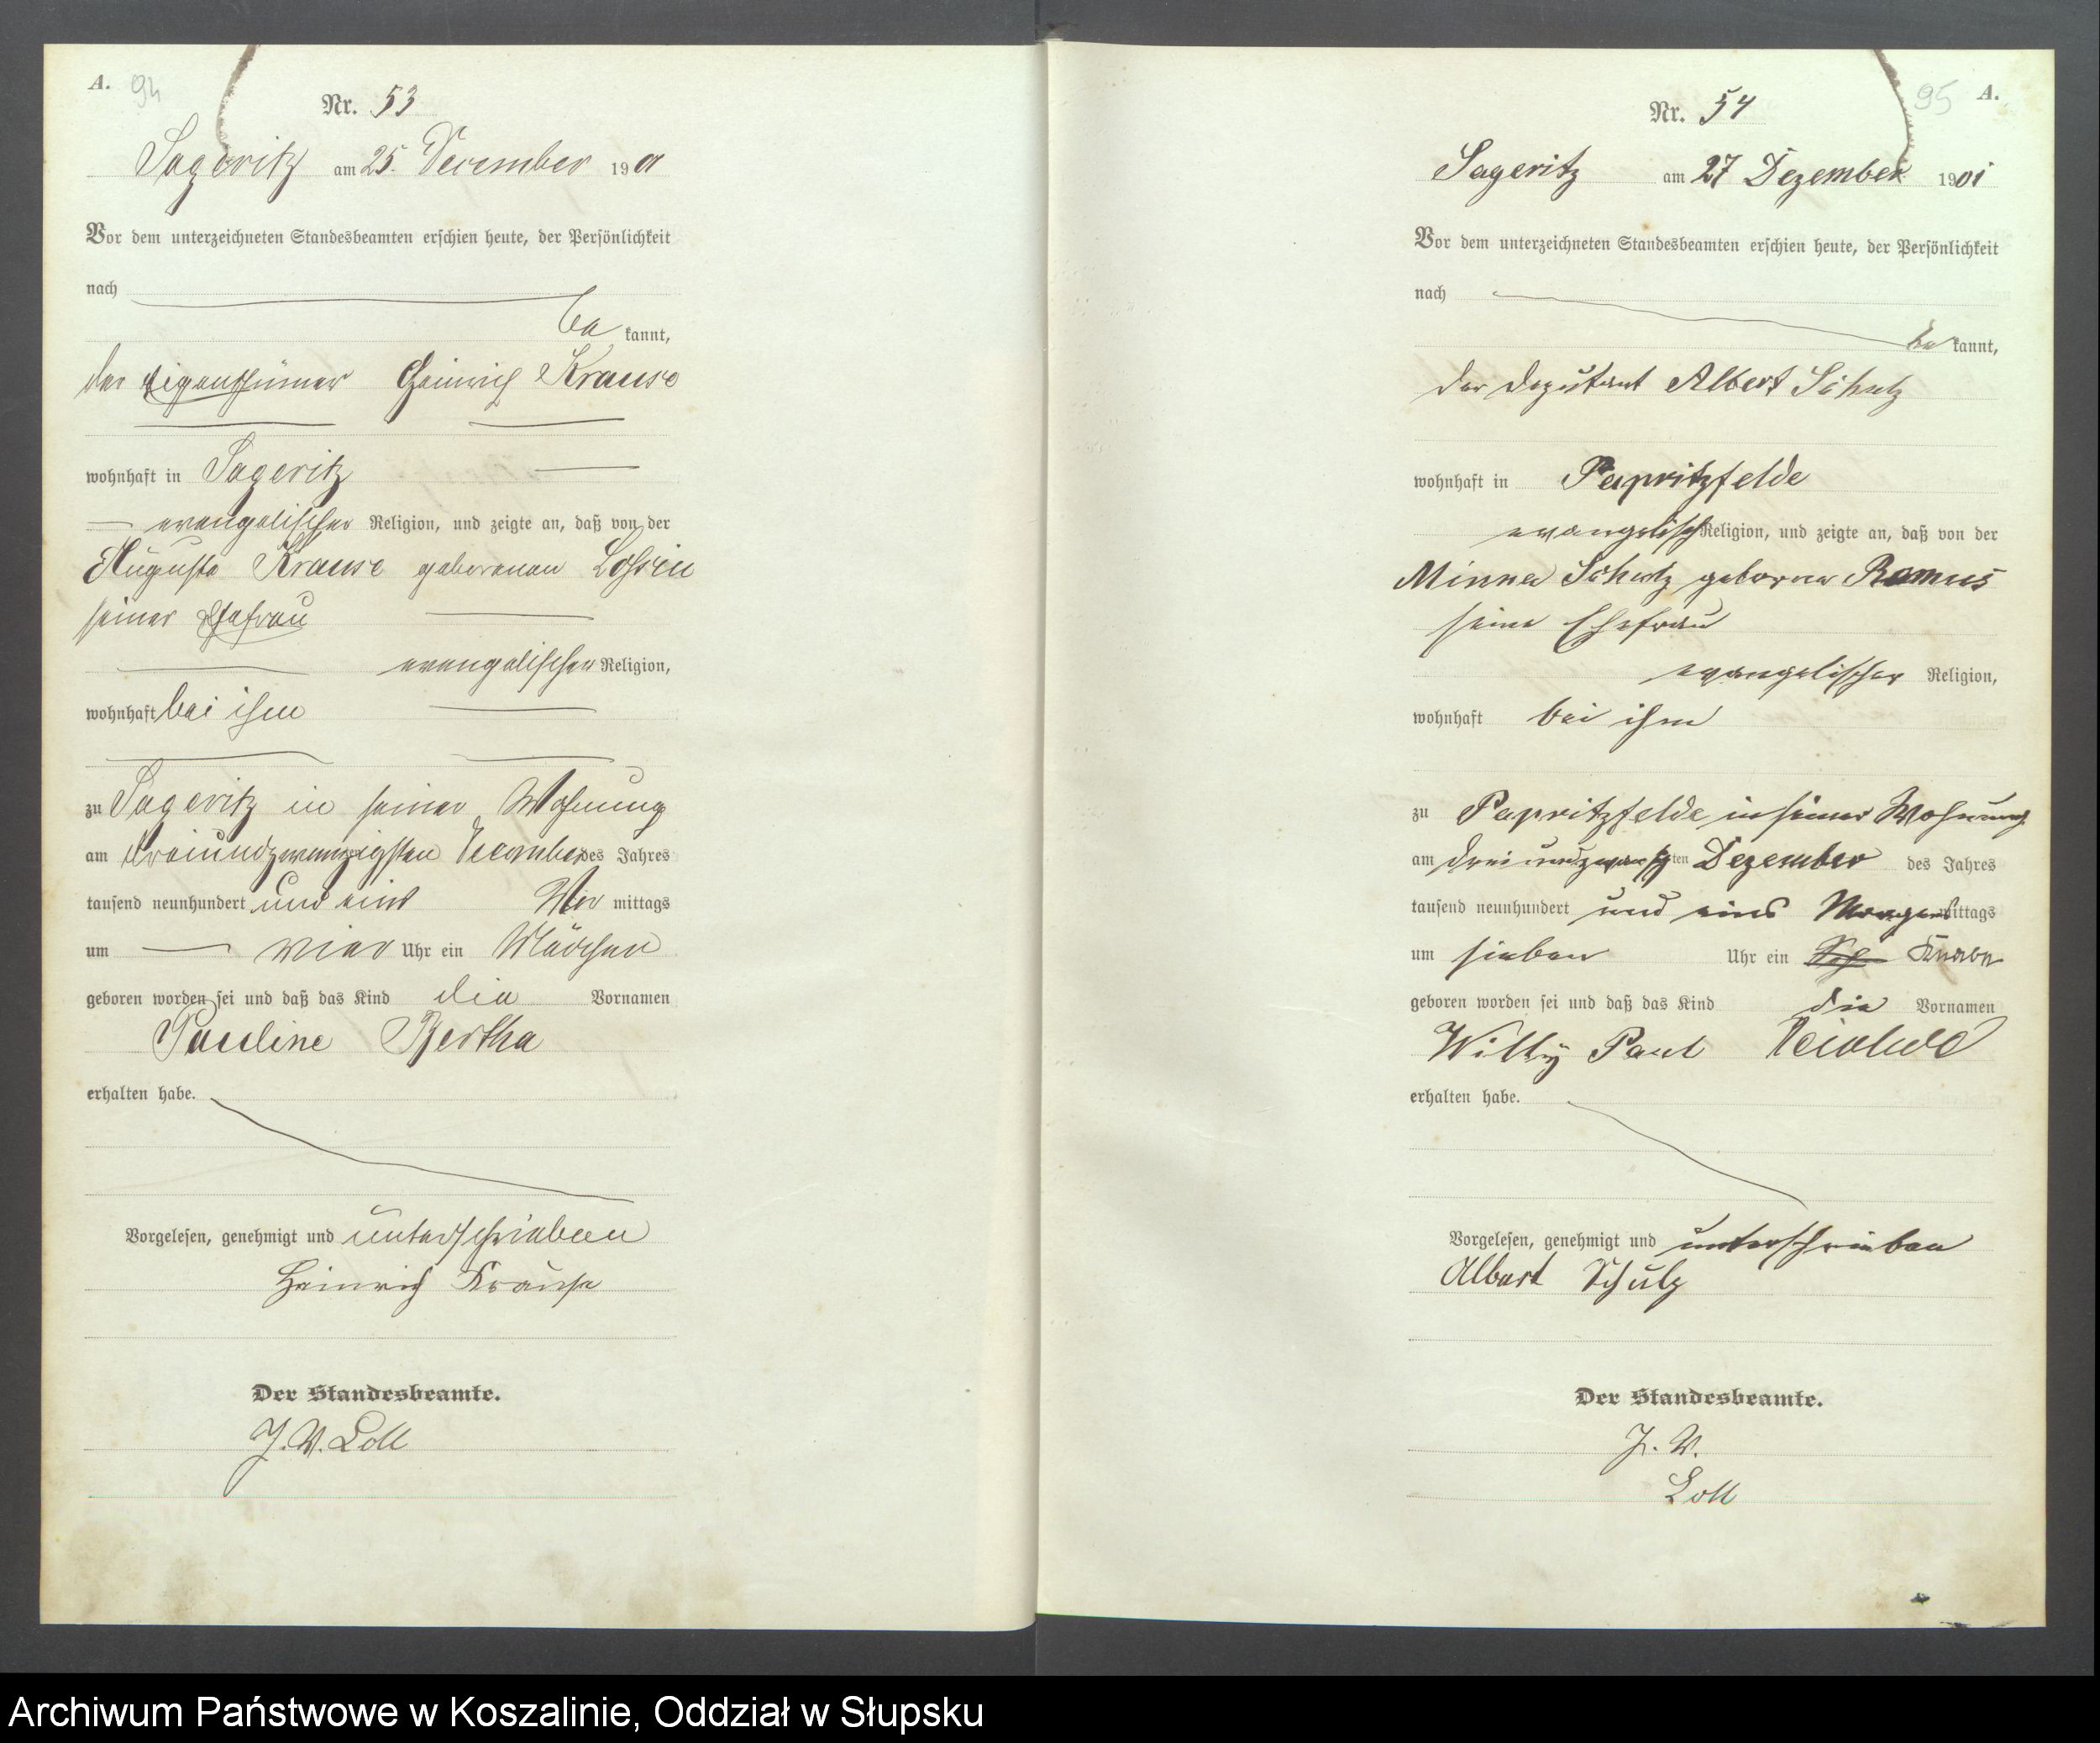 A. 94
Nr. 53
Sageritz am 25. December 1901
Vor dem unterzeichneten Standesbeamten erschien heute, der Persönlichkeit
nach
be kannt,
der Eigenthümer Heinrich Krause
wohnhaft in Sageritz
evangelischer Religion, und zeigte an, daß von der
Auguste Krause geborenen Lossin
seiner Ehefrau
evangelischer Religion,
wohnhaft bei ihm
zu Sageritz in seiner Wohnung
am dreiundzwanzigsten December des Jahres
tausend neunhundert und eins mittags
um vier Uhr ein Mädchen
geboren worden sei und daß das Kind die Vornamen
Pauline Bertha
erhalten habe.
Vorgelesen, genehmigt und unterschrieben
Heinrich Krause
Der Standesbeamte.
J. V. Loll
95 A.
Nr. 54
Sageritz am 27 Dezember 1901
Vor dem unterzeichneten Standesbeamten erschien heute, der Persönlichkeit
nach
be kannt,
der Deputant Albert Schulz
wohnhaft in Papritzfelde
evangelisch Religion, und zeigte an, daß von der
Minna Schulz geborne Ramus
seine Ehefrau
evangelischer Religion,
wohnhaft bei ihm
zu Papritzfelde in seiner Wohnung
am dreiundzwanzigten Dezember des Jahres
tausend neunhundert und eins Morgens mittags
um sieben Uhr ein Knabe
geboren worden sei und daß das Kind die Vornamen
Willy Paul
erhalten habe.
Vorgelesen, genehmigt und unterschrieben
Albert Schulz
Der Standesbeamte.
J. V.
Loll
Archiwum Państwowe w Koszalinie, Oddział w Słupsku